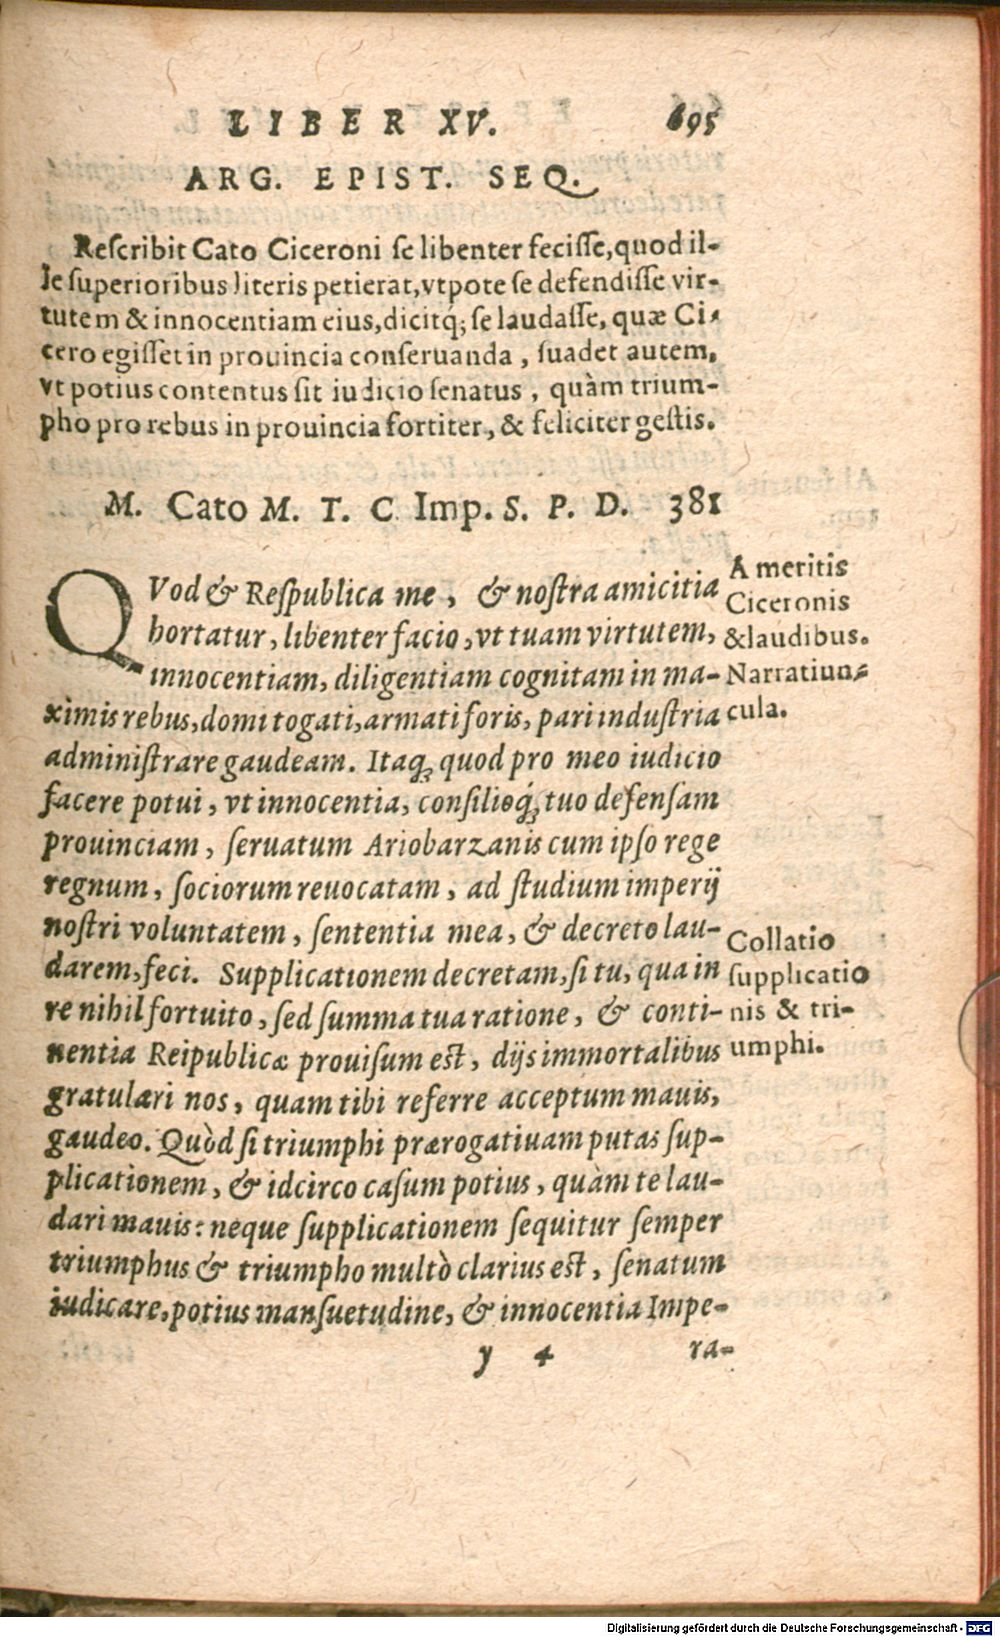 LIBER XV. 695
ARG. EPIST. SEQ.
Reſcribit Cato Ciceroni ſe libenter feciſſe, quod il-
le ſuperioribus literis petierat, vtpote ſe defendiſſe vir-
tutem & innocentiam eius, dicitq́; ſe laudaſſe, quæ Ci-
cero egiſſet in prouincia conſeruanda, ſuadet autem,
vt potius contentus ſit iudicio ſenatus, quàm trium-
pho pro rebus in prouincia fortiter, & feliciter geſtis.
M. Cato M. T. C. Imp. S. P. D. 381
QVod & Reſpublica me, & noſtra amicitia
hortatur, libenter facio, vt tuam virtutem,
innocentiam, diligentiam cognitam in ma-
ximis rebus, domi togati, armati foris, pari induſtria
adminiſtrare gaudeam. Itaq; quod pro meo iudicio
facere potui, vt innocentia, conſilioq́; tuo defenſam
prouinciam, ſeruatum Ariobarzanis cum ipſo rege
regnum, ſociorum reuocatam, ad ſtudium imperij
noſtri voluntatem, ſententia mea, & decreto lau-
darem, feci. Supplicationem decretam, ſi tu, qua in
re nihil fortuito, ſed ſumma tua ratione, & conti-
nentia Reipublicæ prouiſum eſt, dijs immortalibus
gratulari nos, quam tibi referre acceptum mauis,
gaudeo. Quòd ſi triumphi prærogatiuam putas ſup-
plicationem, & idcirco caſum potius, quàm te lau-
dari mauis: neque ſupplicationem ſequitur ſemper
triumphus & triumpho multò clarius eſt, ſenatum
iudicare, potius manſuetudine, & innocentia Impe-
y 4 ra-
A meritis
Ciceronis
& laudibus.
Narratiun-
cula.
Collatio
ſupplicatio
nis & tri-
umphi.
Digitalisierung gefördert durch die Deutsche Forschungsgemeinschaft - DFG